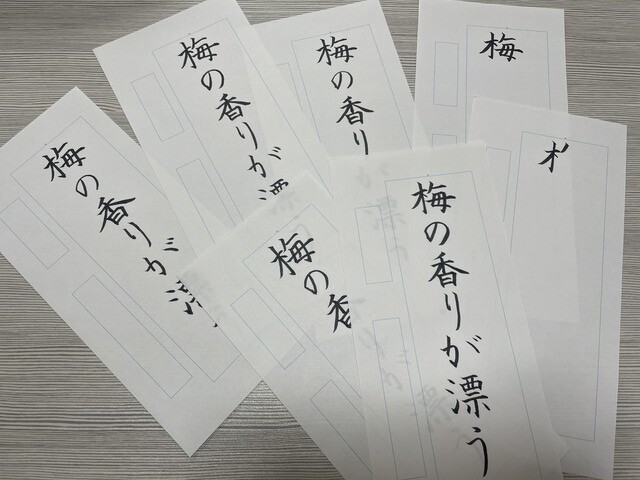 梅の香りが
梅の香りが
梅の香り
梅
梅の
梅の香りが漂う